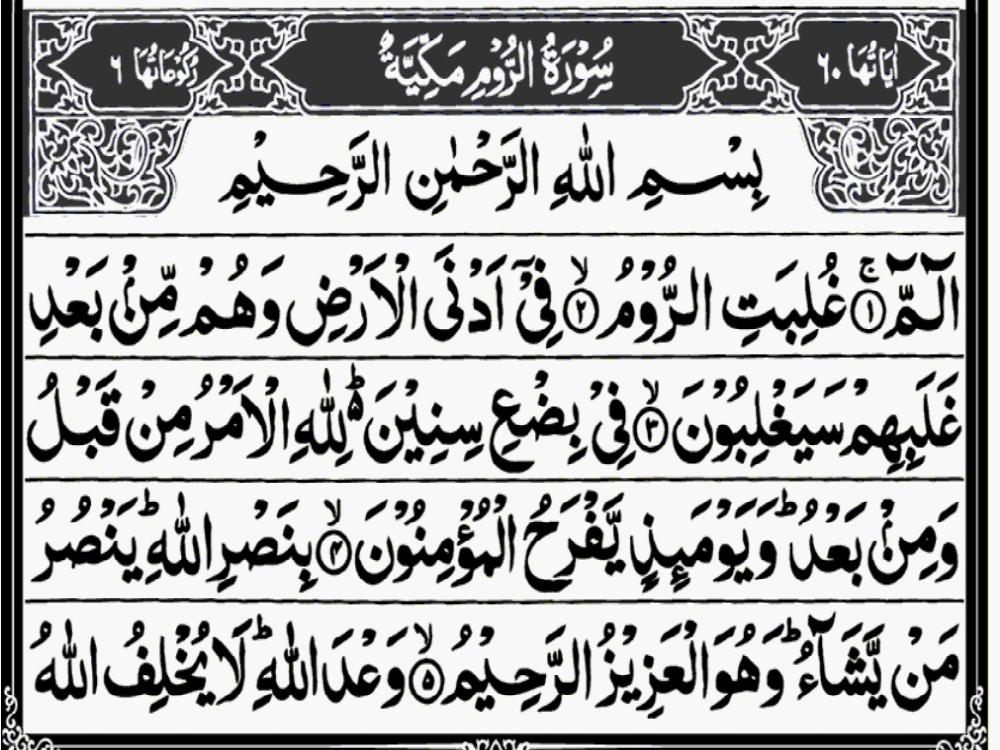 اٰيَاتُهَا ٦٠ سُوْرَةُ الرُّوْمِ مَكِّيَّةٌ رُكُوْعَاتُهَا ٦
بِسْمِ اللّٰهِ الرَّحْمٰنِ الرَّحِيْمِ
الٓمّٓ ۚ﴿۱﴾ غُلِبَتِ الرُّوْمُ ۙ﴿۲﴾ فِیْۤ اَدْنَی الْاَرْضِ وَهُمْ مِّنْۢ بَعْدِ
غَلَبِهِمْ سَیَغْلِبُوْنَ ۙ﴿۳﴾ فِیْ بِضْعِ سِنِیْنَ ۬ؕ لِلّٰهِ الْاَمْرُ مِنْ قَبْلُ
وَمِنْۢ بَعْدُ ؕ وَیَوْمَىِٕذٍ یَّفْرَحُ الْمُؤْمِنُوْنَ ۙ﴿۴﴾ بِنَصْرِ اللّٰهِ ؕ یَنْصُرُ
مَنْ یَّشَآءُ ؕ وَهُوَ الْعَزِیْزُ الرَّحِیْمُ ۙ﴿۵﴾ وَعْدَ اللّٰهِ ؕ لَا یُخْلِفُ اللّٰهُ